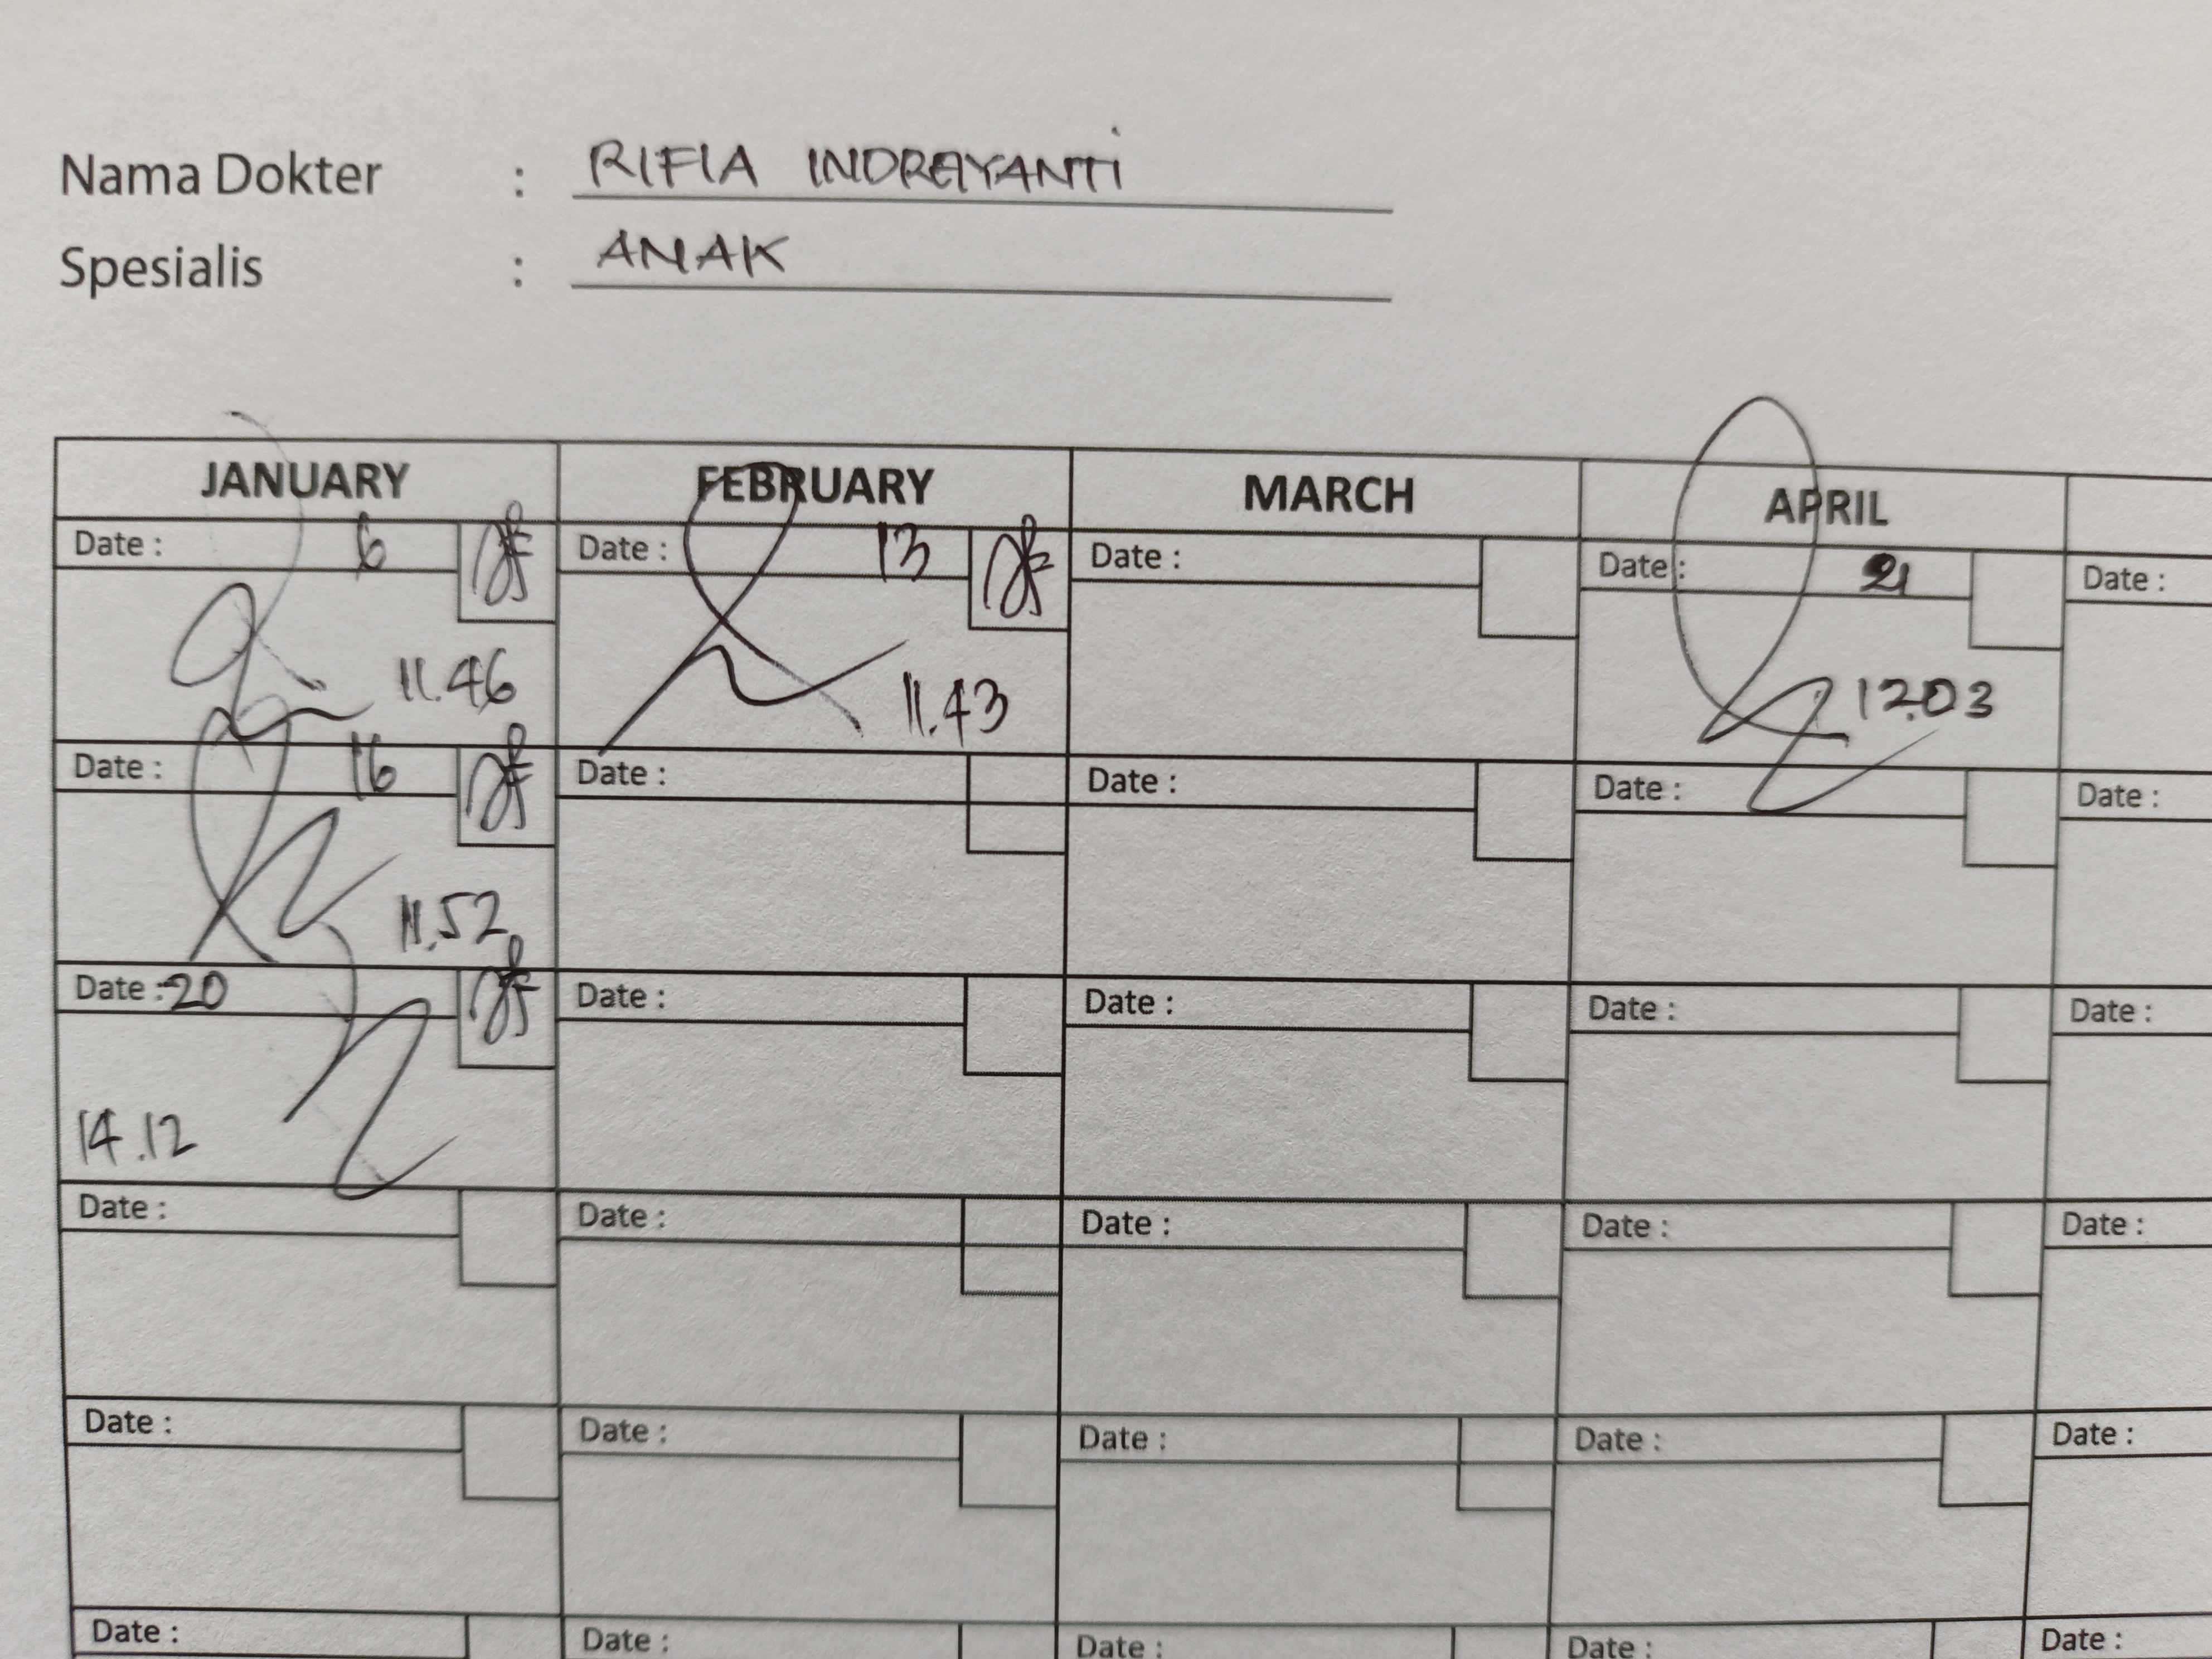 Nama Dokter : RIFIA INDRAYANTI
Spesialis : ANAK
JANUARY FEBRUARY MARCH APRIL
Date : 6 Date : 13 Date : Date : 21 Date :
11.46 11.43 12.03
Date : 16 Date : Date : Date : Date :
11.52
Date : 20 Date : Date : Date : Date :
14.12
Date : Date : Date : Date : Date :
Date : Date : Date : Date : Date :
Date : Date : Date : Date : Date :